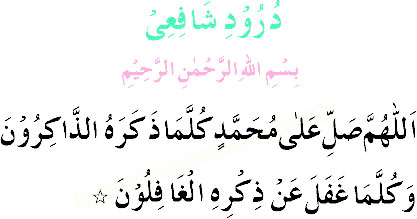 دُرُوْدِ شَافِعِیْ
بِسْمِ اللهِ الرَّحْمٰنِ الرَّحِيْمِ
اَللّٰهُمَّ صَلِّ عَلٰى مُحَمَّدٍ كُلَّمَا ذَكَرَهُ الذَّاكِرُوْنَ
وَكُلَّمَا غَفَلَ عَنْ ذِكْرِهِ الْغَافِلُوْنَ ☆